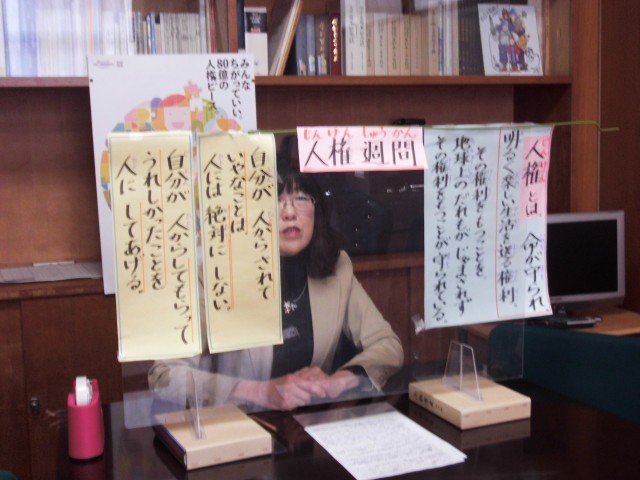 みんな
ちがっていい、
80億の
人権ピース。
じんけん しゅうかん
人権 週間
じんけん
人権とは、命が守られ
明るく楽しい生活を送る権利。
その権利をもつことを
地球上のだれもが じゃまされず
その権利をもつことが守られている。
自分が 人からされて
いやなことは
人には 絶対に しない。
自分が 人からしてもらって
うれしかったことを
人に してあげる。